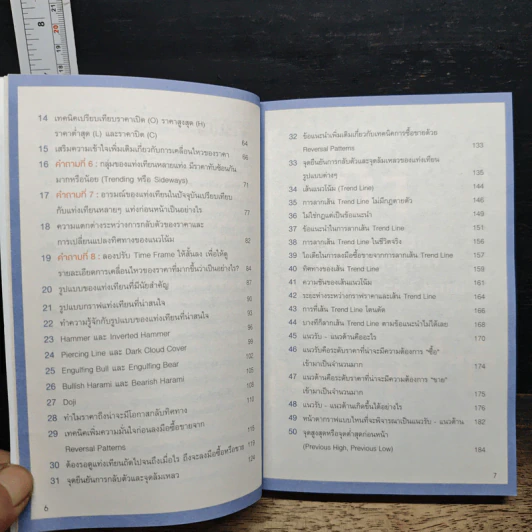 14 เทคนิคเปรียบเทียบราคาเปิด (O) ราคาสูงสุด (H)
ราคาต่ำสุด (L) และราคาปิด (C) 64
15 เสริมความเข้าใจเพิ่มเติมเกี่ยวกับการเคลื่อนไหวของราคา 66
16 คำถามที่ 6 : กลุ่มของแท่งเทียนหลายแท่ง มีราคาทับซ้อนกัน
มากหรือน้อย (Trending หรือ Sideways) 71
17 คำถามที่ 7 : อารมณ์ของแท่งเทียนในปัจจุบันเปรียบเทียบ
กับแท่งเทียนหลายๆ แท่งก่อนหน้าเป็นอย่างไร 77
18 ความแตกต่างระหว่างการกลับตัวของราคาและ
การเปลี่ยนแปลงทิศทางของแนวโน้ม 82
19 คำถามที่ 8 : ลองปรับ Time Frame ให้สั้นลง เพื่อให้ดู
รายละเอียดการเคลื่อนไหวของราคาที่มากขึ้นว่าเป็นอย่างไร? 84
20 รูปแบบของแท่งเทียนที่มีนัยสำคัญ 87
21 รูปแบบกราฟแท่งเทียนที่น่าสนใจ 90
22 ทำความรู้จักกับรูปแบบของแท่งเทียนที่น่าสนใจ 90
23 Hammer และ Inverted Hammer
24 Piercing Line และ Dark Cloud Cover
25 Engulfing Bull และ Engulfing Bear 102
26 Bullish Harami และ Bearish Harami 105
27 Doji
28 ทำไมราคาถึงน่าจะมีโอกาสกลับทิศทาง
29 เทคนิคเพิ่มความมั่นใจก่อนลงมือซื้อขายจาก
Reversal Patterns
30 ต้องรอดูแท่งเทียนถัดไปจนถึงเมื่อไร ถึงจะลงมือซื้อหรือขาย
31 จุดยืนยันการกลับตัวและจุดล้มเหลว
6
32 ข้อแนะนำเพิ่มเติมเกี่ยวกับเทคนิคการซื้อขายด้วย
Reversal Patterns 133
33 จุดยืนยันการกลับตัวและจุดล้มเหลวของแท่งเทียน
รูปแบบต่างๆ 135
34 เส้นแนวโน้ม (Trend Line) 144
35 การลากเส้น Trend Line ไม่มีกฎตายตัว 146
36 ไม่ใช่กฎแต่เป็นข้อแนะนำ 149
37 ข้อแนะนำในการลากเส้น Trend Line 151
38 การลากเส้น Trend Line ในชีวิตจริง 156
39 ไอเดียในการลงมือซื้อขายจากการลากเส้น Trend Line 158
40 ทิศทางของเส้น Trend Line 160
41 ความชันของเส้นแนวโน้ม 161
42 ระยะห่างระหว่างกราฟราคาและเส้น Trend Line 164
43 การตีเส้น Trend Line โดนคัด 166
44 บางทีก็ลากเส้น Trend Line ตามข้อแนะนำไม่ได้เลย 168
45 แนวรับ - แนวต้านคืออะไร 170
46 แนวรับคือระดับราคาที่น่าจะมีความต้องการ "ซื้อ"
เข้ามาเป็นจำนวนมาก 174
47 แนวต้านคือระดับราคาที่น่าจะมีความต้องการ "ขาย"
เข้ามาเป็นจำนวนมาก 175
48 แนวรับ - แนวต้านเกิดขึ้นได้อย่างไร 176
49 หน้าตากราฟแบบไหนที่จะพิจารณาเป็นแนวรับ - แนวต้าน 182
50 จุดสูงสุดหรือจุดต่ำสุดก่อนหน้า
(Previous High, Previous Low) 184
7